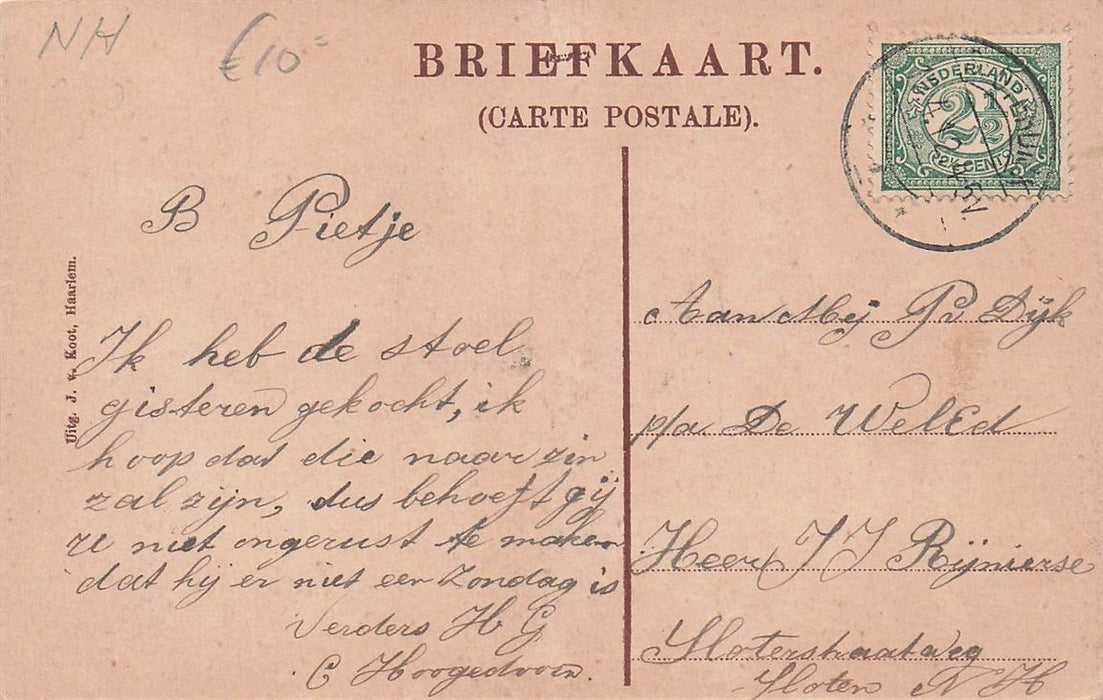 NH
€10=
BRIEFKAART.
(CARTE POSTALE).
NEDERLAND
2½
2½ CENT
B Pietje
Ik heb de stoel
gisteren gekocht, ik
hoop dat die naar zin
zal zijn, dus behoeft gij
U niet ongerust te maken
dat hij er niet eer Zondag is
Verders H G
C Hoogedoorn.
Uitg. J. v. Koot, Haarlem.
Aan Mej P v Dijk
p/a De WelEd
Heer J J Rijnierse
Sloterstraatweg
Sloten N H